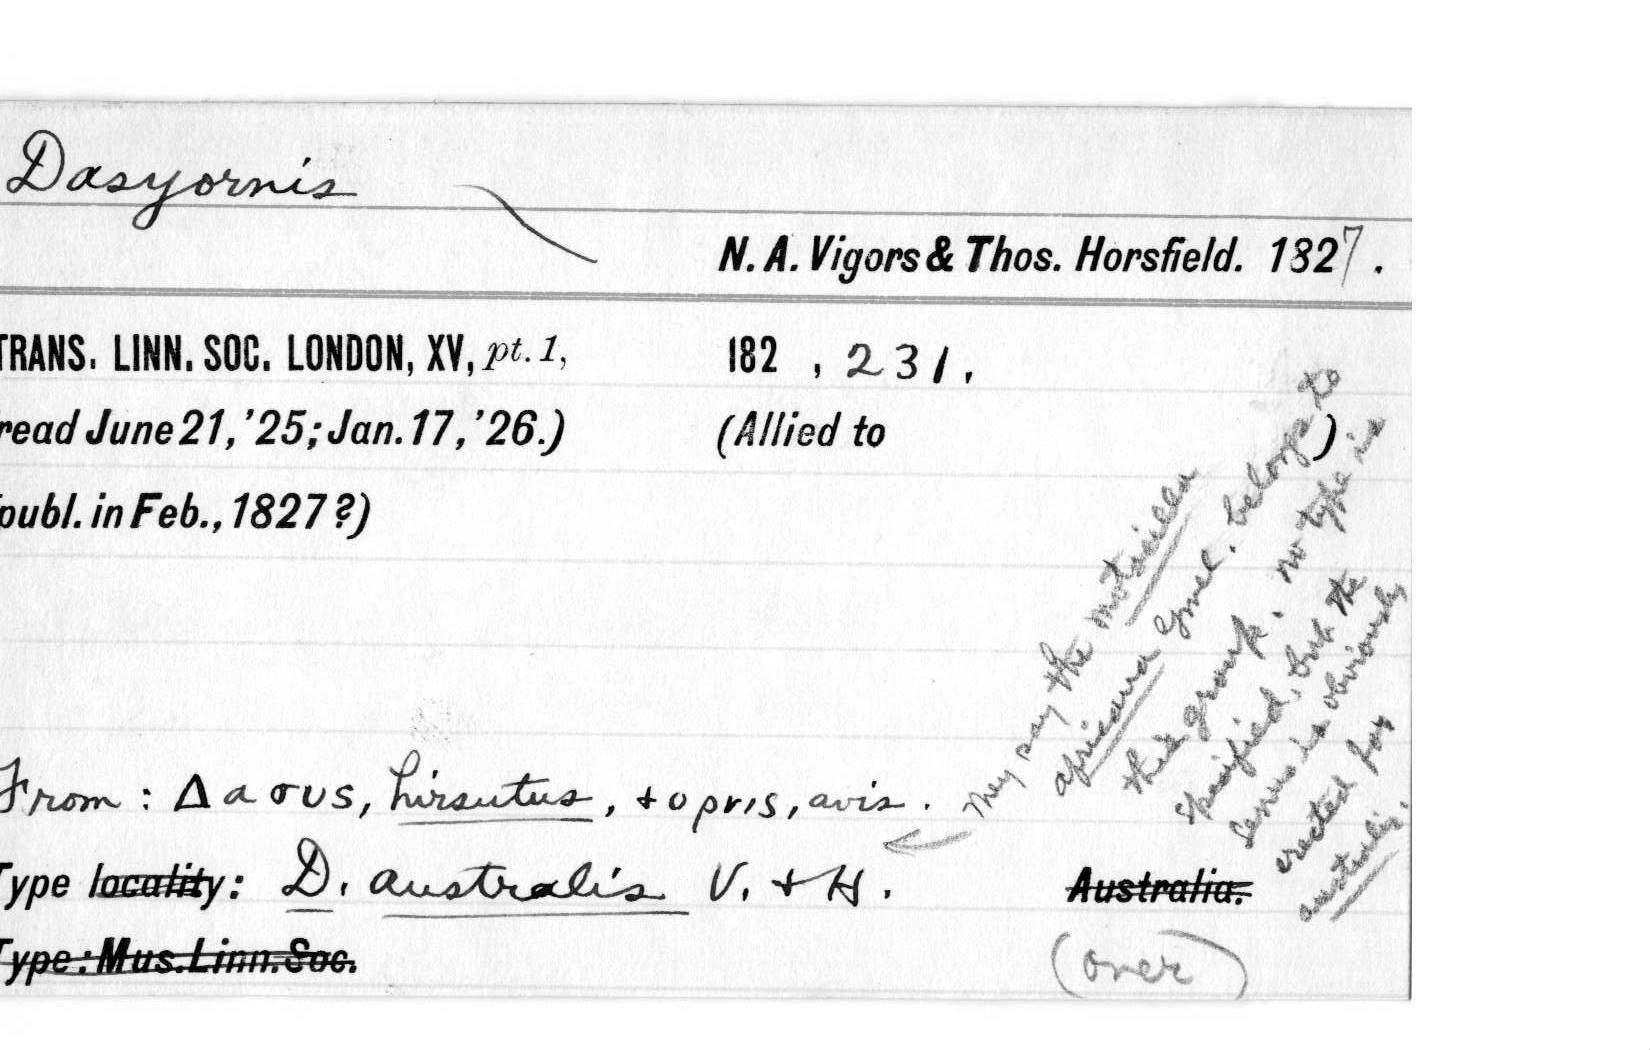 Dasyornis
N. A. Vigors & Thos. Horsfield. 1827.
TRANS. LINN. SOC. LONDON, XV, pt. 1, 182 , 231.
read June 21, '25; Jan. 17, '26.) (Allied to )
publ. in Feb., 1827?)
From: Δασυς, hirsutus, + ορνις, avis.
Type locality: D. australis V. + H. Australia.
Type: Mus. Linn. Soc.
(over)
They say the motacilla
africana Gmel. belongs to
this group. no type is
specified, but the
genus is obviously
erected for
australis.